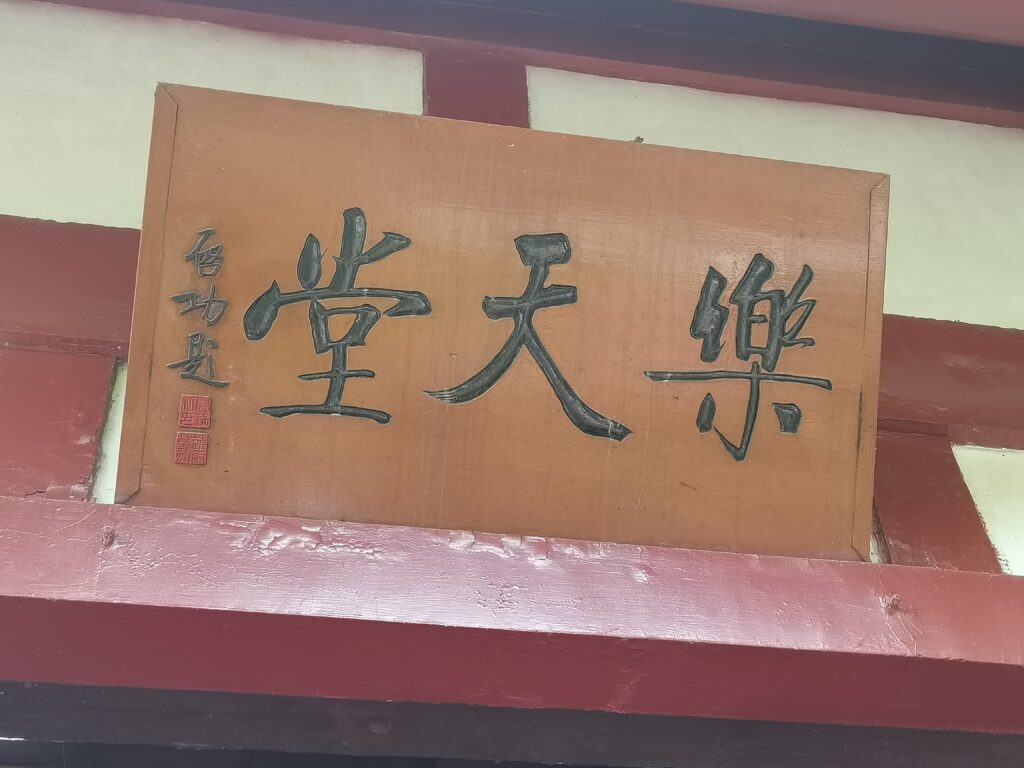 樂天堂
启功題